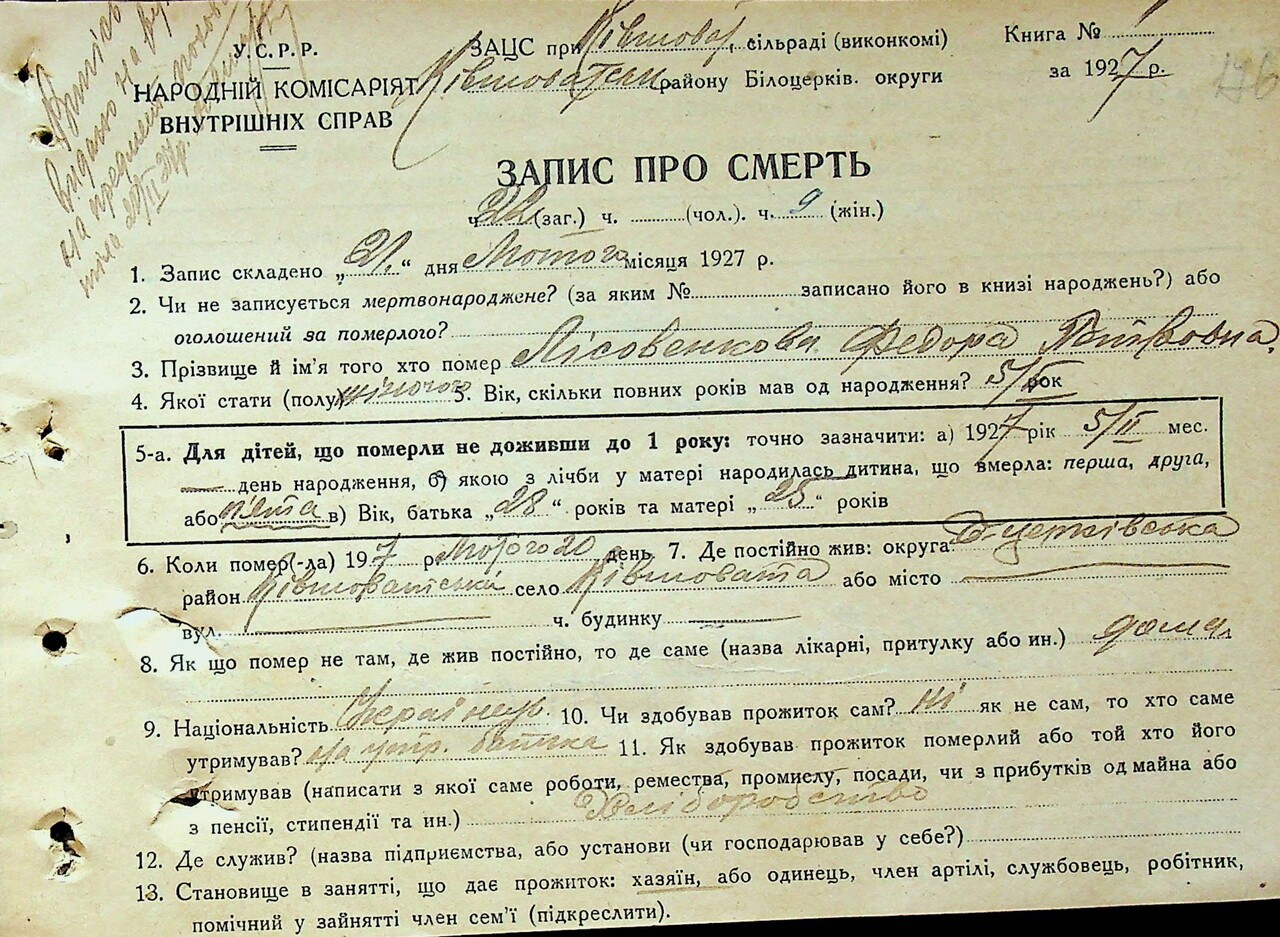 Виписъ
видано на
на предмет похов
тіла 20/II 27 р.
У.С.Р.Р.
НАРОДНІЙ КОМІСАРІЯТ
ВНУТРІШНІХ СПРАВ
ЗАЦС при Ківшоват, сільраді (виконкомі)
Ківшоватськ. району Білоцерків. округи
Книга № 1
за 1927 р.
ЗАПИС ПРО СМЕРТЬ
ч. 22 (заг.) ч. (чол.). ч. 9 (жін.)
1. Запис складено „21.“ дня Лютого місяця 1927 р.
2. Чи не записується мертвонароджене? (за яким № записано його в книзі народжень?) або
оголошений за померлого?
3. Прізвище й ім'я того хто помер Лісовенкова Федора
4. Якої стати (полу) жіночого 5. Вік, скільки повних років мав од народження? 5/II рок
5-а. Для дітей, що померли не доживши до 1 року: точно зазначити: а) 1927 рік 5/II мес.
— день народження, б) якою з лічби у матері народилась дитина, що вмерла: перша, друга,
або п'ята в) Вік, батька „28“ років та матері „25“ років
6. Коли помер(-ла) 1927 р Лютого 20 день 7. Де постійно жив: округа Б-церківська
район Ківшоватський село Ківшовата або місто —
вул. — ч. будинку —
8. Як що помер не там, де жив постійно, то де саме (назва лікарні, притулку або ин.) дома
9. Національність Українць 10. Чи здобував прожиток сам? ні як не сам, то хто саме
утримував? на утр. батька 11. Як здобував прожиток померлий або той хто його
утримував (написати з якої саме роботи, ремества, промислу, посади, чи з прибутків од майна або
з пенсії, стипендії та ин.) Хліборобство
12. Де служив? (назва підприємства, або установи (чи господарював у себе?)
13. Становище в занятті, що дає прожиток: хазяїн, або одинець, член артілі, службовець, робітник,
помічний у зайнятті член сем'ї (підкреслити).